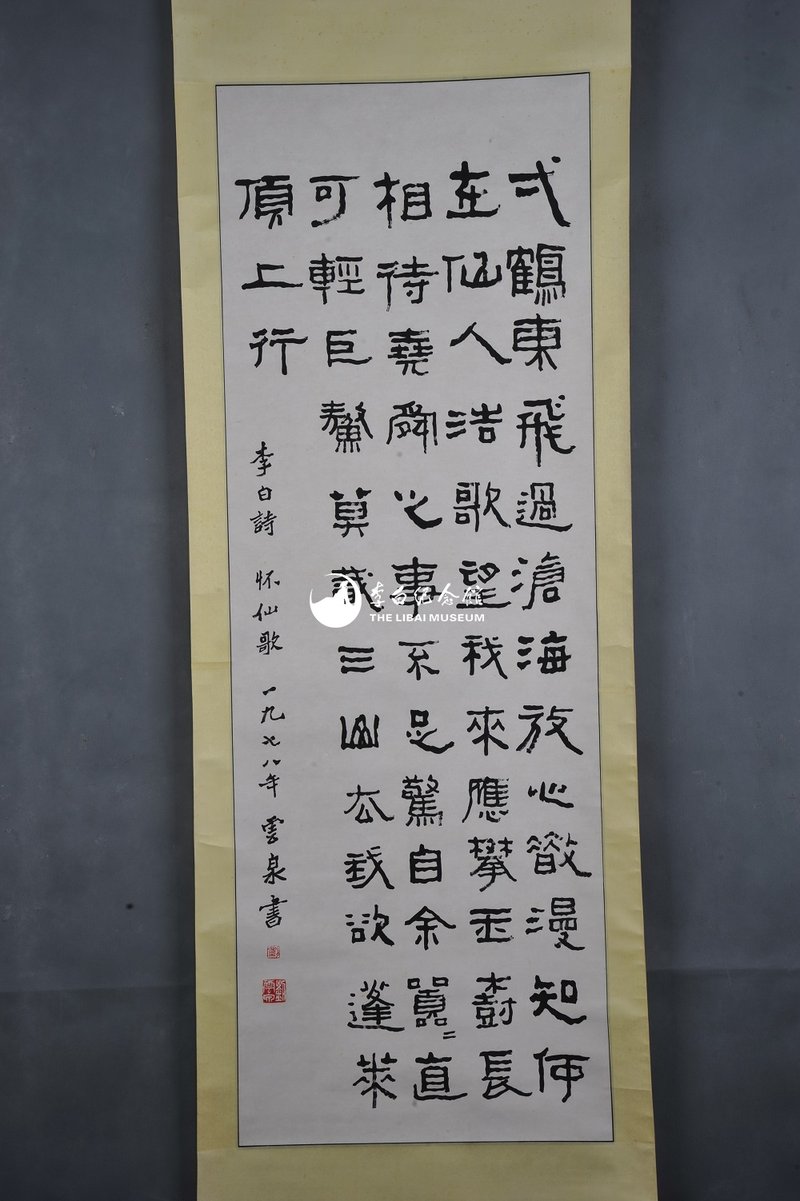 弌鶴東飛過滄海放心散漫知何
在仙人浩歌望我來應攀玉樹長
相待堯舜之事不足驚自余囂〻直
可輕巨鰲莫載三山去我欲蓬萊
頂上行
李白詩 怀仙歌 一九七八年 雲泉書
李白纪念馆
THE LIBAI MUSEUM